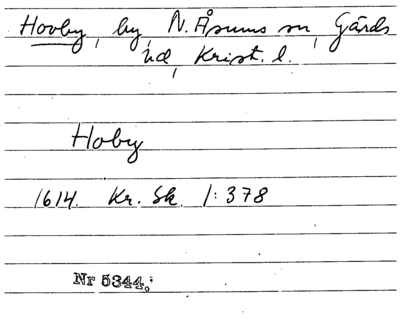 Hovby, by, N. Åsums sn, Gärds
hd, Krist. l.
Hoby
1614. Kr. Sk. 1:378
Nr 5344.